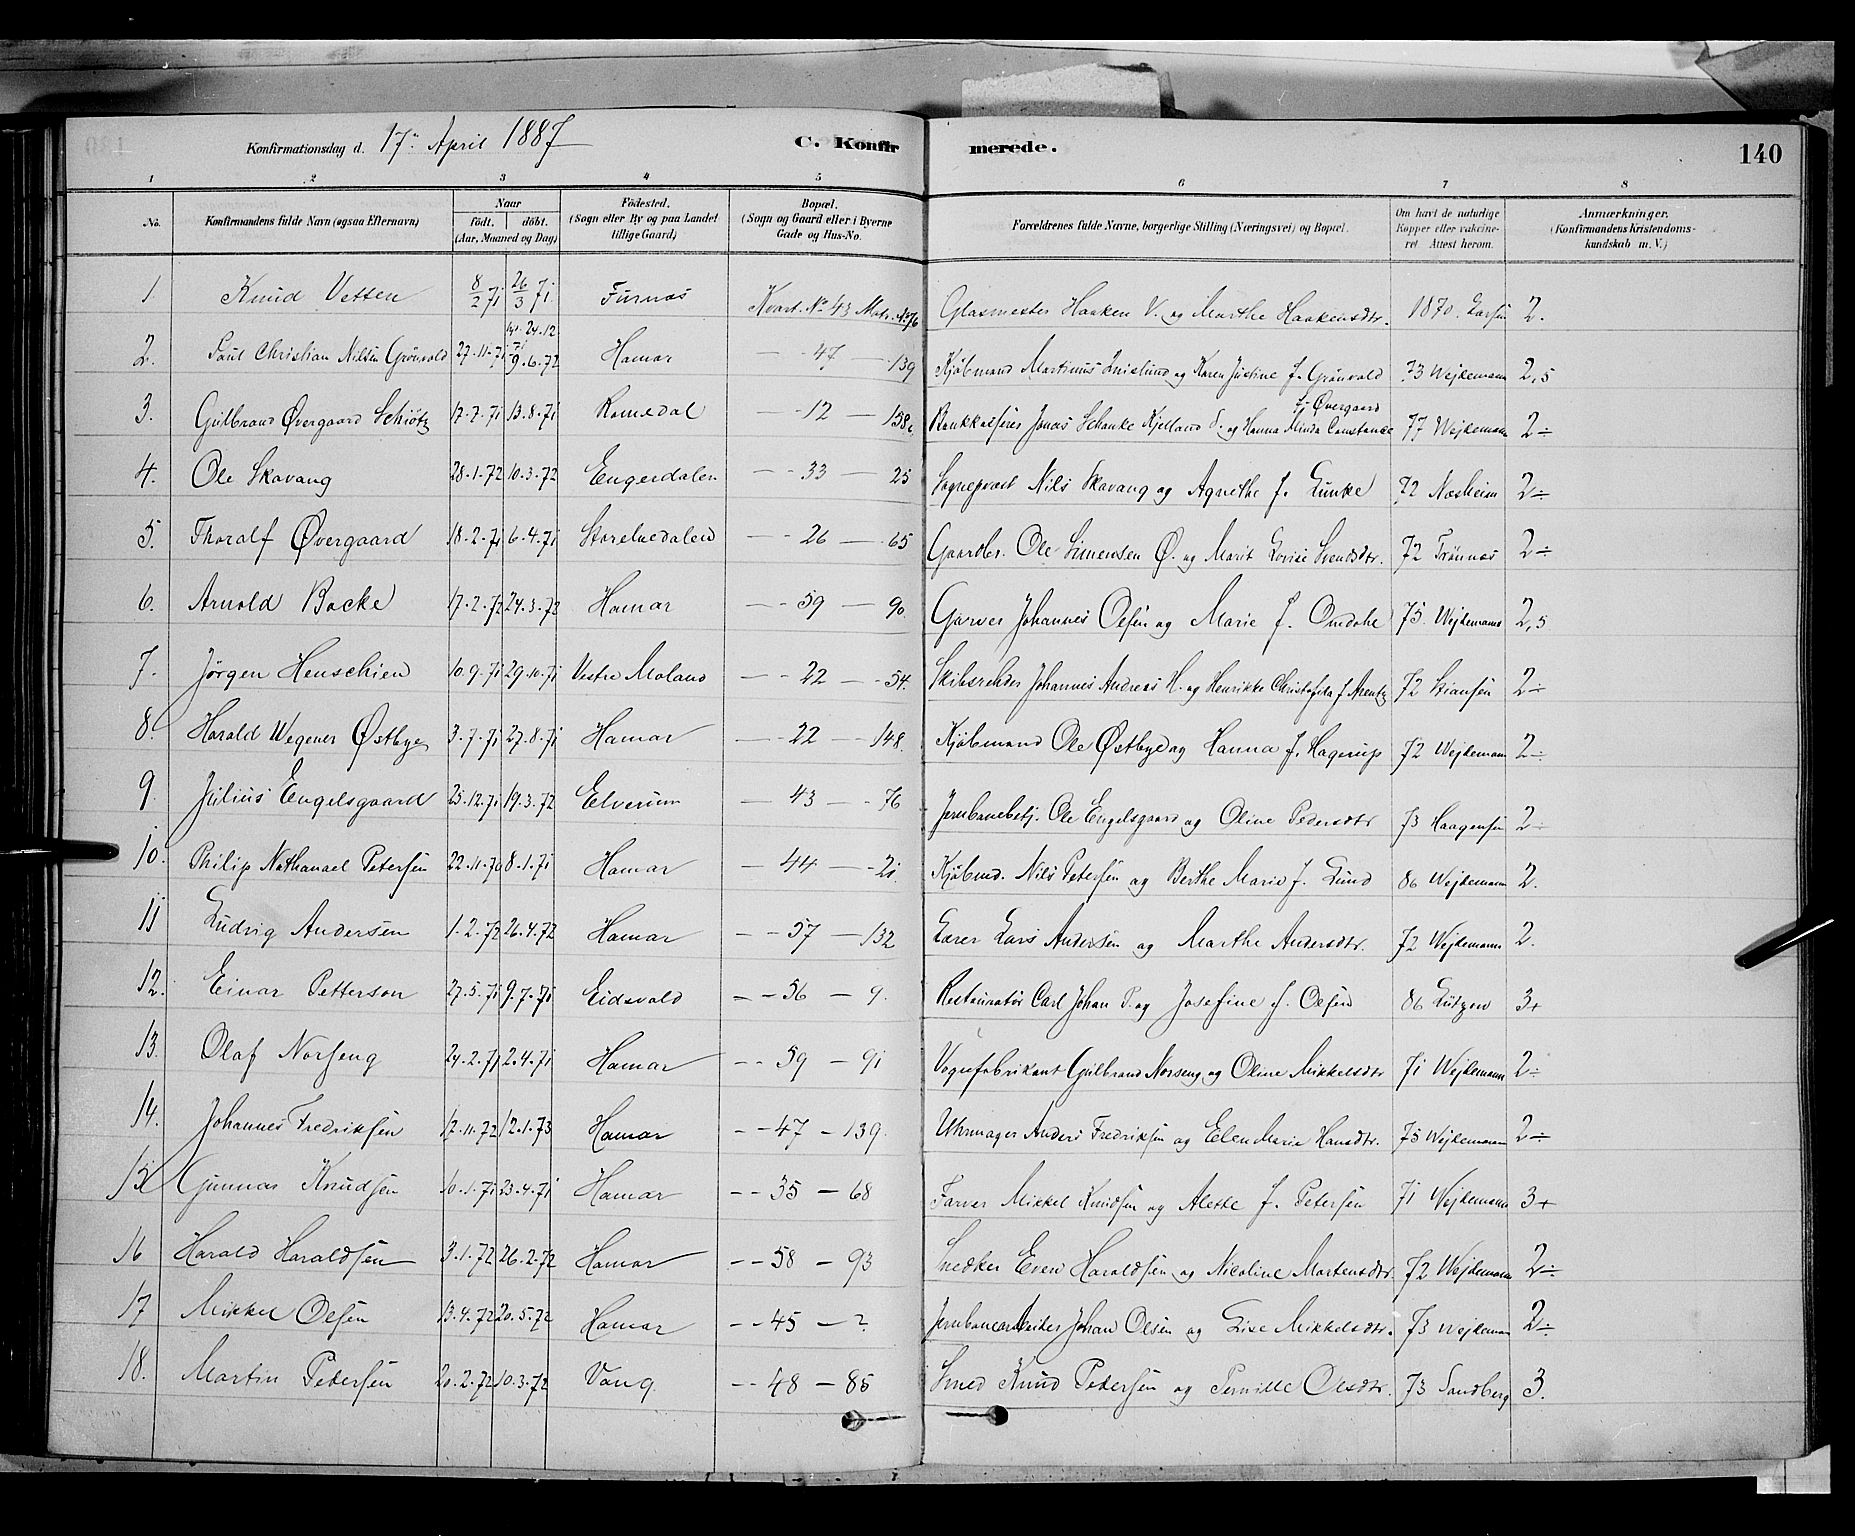 Konfirmationsdag d. 17de April 1887 C. Konfirmerede. 140
1 2 3 4 5 6 7 8
No. Konfirmandens fulde Navn (ogsaa Efternavn) Naar født. døbt. (Aar, Maaned og Dag) Fødested. (Sogn eller By og paa Landet tillige Gaard) Bopæl. (Sogn og Gaard eller i Byerne Gade og Hus-No. Forældrenes fulde Navne, borgerlige Stilling (Næringsvei) og Bopæl. Om havt de naturlige Kopper eller vakcineret Attest herom. Anmærkninger. (Konfirmandens Kristendomskundskab m. V.)
1. Knud Vetten 8/2 71 26/3 71 Furnæs Kvart. No 43 Matr. No 76 Glasmester Haaken V. og Marthe Haakensdtr. 1870. Larsen 2.
2. Paul Christian Nilsen Grönvold 27.11.71 24.12 71 9.6.72 Hamar — 47 — 139 Kjøbmand Martinus og Karen Justine f. Grönvold 73 Wejdemann 2,5
3. Gulbrand Øvergaard Schiötz 17.7.71 13.8.71 Romedal — 12 — 158 Bankkasserer Jonas Schanke Kjelland S. og Hanna Alinda Constance f. Øvergaard 77 Wejdemann 2÷
4. Ole Skavang 28.1.72 10.3.72 Engerdalen — 33 — 25 Sognepræst Nils Skavang og Agnethe f. Lunke 72 Næsheim 2÷
5. Thoralf Øvergaard 18.2.71 6.4.71 Storelvedalen — 26 — 65 Gaardbr. Ole Simensen Ø. og Marit Lovise Svendsdtr. 72 Trønnæs 2÷
6. Arnold Backe 17.2.72 24.3.72 Hamar — 59 — 90. Garver Johannes Olsen og Marie f. Omdahl 75 Wejdemann 2,5
7. Jørgen Henschien 10.9.71 29.10.71 Vestre Moland — 22 — 54. Skibsreder Johannes Andreas H. og Henrikke Christofa f. Arentz 72 Stiansen 2÷
8. Harald Wegener Østbye 3.7.71 27.8.71 Hamar — 22 — 148. Kjøbmand Ole Østbye og Hanna f. Hagerup 72 Wejdemann 2÷
9. Julius Engelsgaard 25.12.71 19.3.72 Elverum — 43 — 76 Jernbanebetj. Ole Engelsgaard og Oline Pedersdtr 73 Haagensen 2÷
10. Philip Nathanael Petersen 22.11.70 8.1.71 Hamar — 44 — 21 Kjøbmd. Nils Petersen og Berthe Marie f. Lund 86 Wejdemann 2.
11 Ludvig Andersen 1.2.72 26.4.72 Hamar — 57 — 132 Lars Andersen og Marthe Andersdtr. 72 Wejdemann 2.
12. Einar Petterson 27.5.71 9.7.71 Eidsvold — 56 — 9. Restauratør Carl Johan P. og Josefine f. Olsen 86 Lützow 3+
13. Olaf Norseng 24.2.71 2.4.71 Hamar — 59 — 91 Vognfabrikant Gulbrand Norseng og Oline Mikkelsdtr 71 Wejdemann 2÷
14. Johannes Fredriksen 17.11.72 12.1.73 Hamar — 47 — 139. Uhrmager Anders Fredriksen og Elen Marie Hansdtr. 75 Wejdemann 2÷
15 Gunnar Knudsen 10.1.71 23.4.71 Hamar — 35 — 68 Farver Mikkel Knudsen og Alette f. Petersen 71 Wejdemann 3+
16 Harald Haraldsen 3.1.72 26.2.72 Hamar — 58 — 93 Snedker Even Haraldsen og Nicoline Mortensdtr. 72 Wejdemann 2÷
17 Mikkel Olsen 13.4.72 20.5.72 Hamar — 45 — ? Jernbanearbeider Johan Olsen og Lise Mikkelsdtr. 73 Wejdemann 2÷
18. Martin Pedersen 20.2.72 10.3.72 Vang — 48 — 85 Smed Knud Pedersen og Pernille Olsdtr. 73 Sandberg 3.